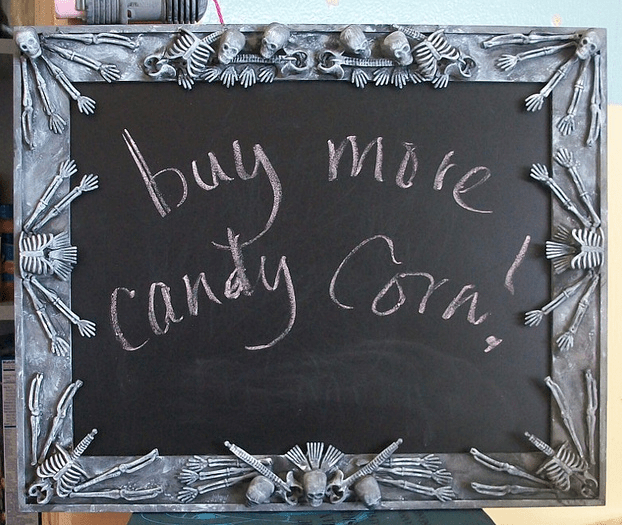 buy more
candy Corn!